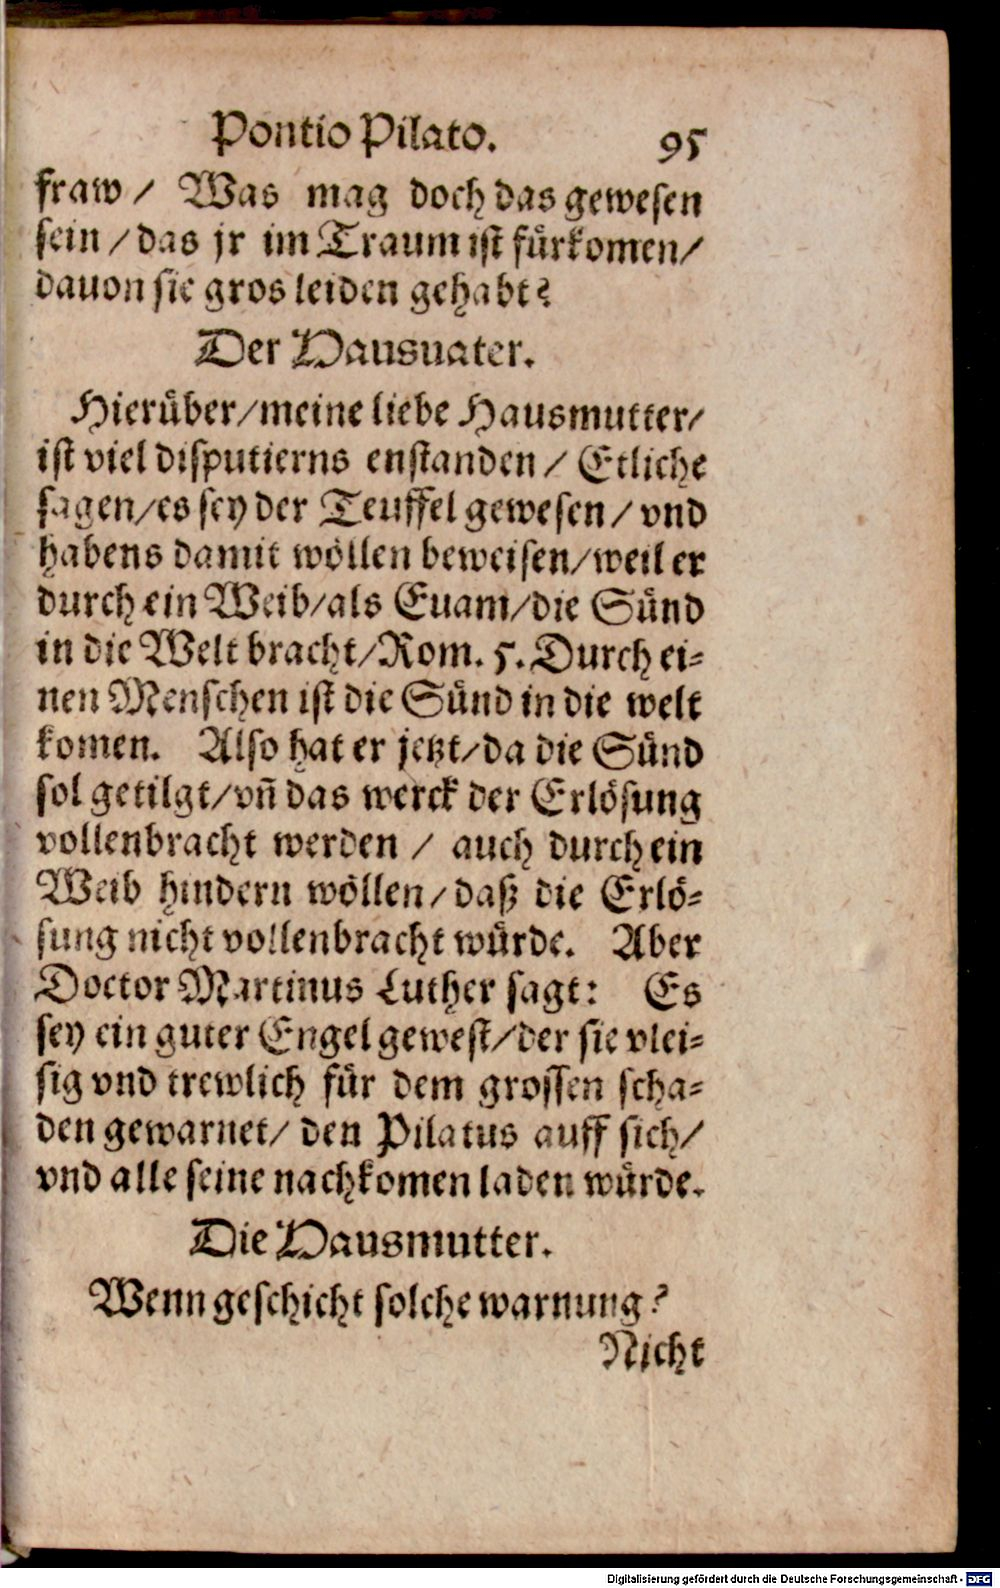 Pontio Pilato. 95
fraw / Was mag doch das gewesen
sein / das jr im Traum ist fürkomen/
dauon sie gros leiden gehabt?
Der Hausuater.
Hierüber/meine liebe Hausmutter/
ist viel disputierns enstanden / Etliche
sagen/es sey der Teuffel gewesen / vnd
habens damit wöllen beweisen/weil er
durch ein Weib/als Euam/die Sünd
in die Welt bracht/Rom. 5. Durch ei-
nen Menschen ist die Sünd in die welt
komen. Also hat er jetzt/da die Sünd
sol getilgt/vñ das werck der Erlösung
vollenbracht werden / auch durch ein
Weib hindern wöllen/daß die Erlö-
sung nicht vollenbracht würde. Aber
Doctor Martinus Luther sagt: Es
sey ein guter Engel gewest/der sie vlei-
sig vnd trewlich für dem grossen scha-
den gewarnet/ den Pilatus auff sich/
vnd alle seine nachkomen laden würde.
Die Hausmutter.
Wenn geschicht solche warnung?
Nicht
Digitalisierung gefördert durch die Deutsche Forschungsgemeinschaft - DFG